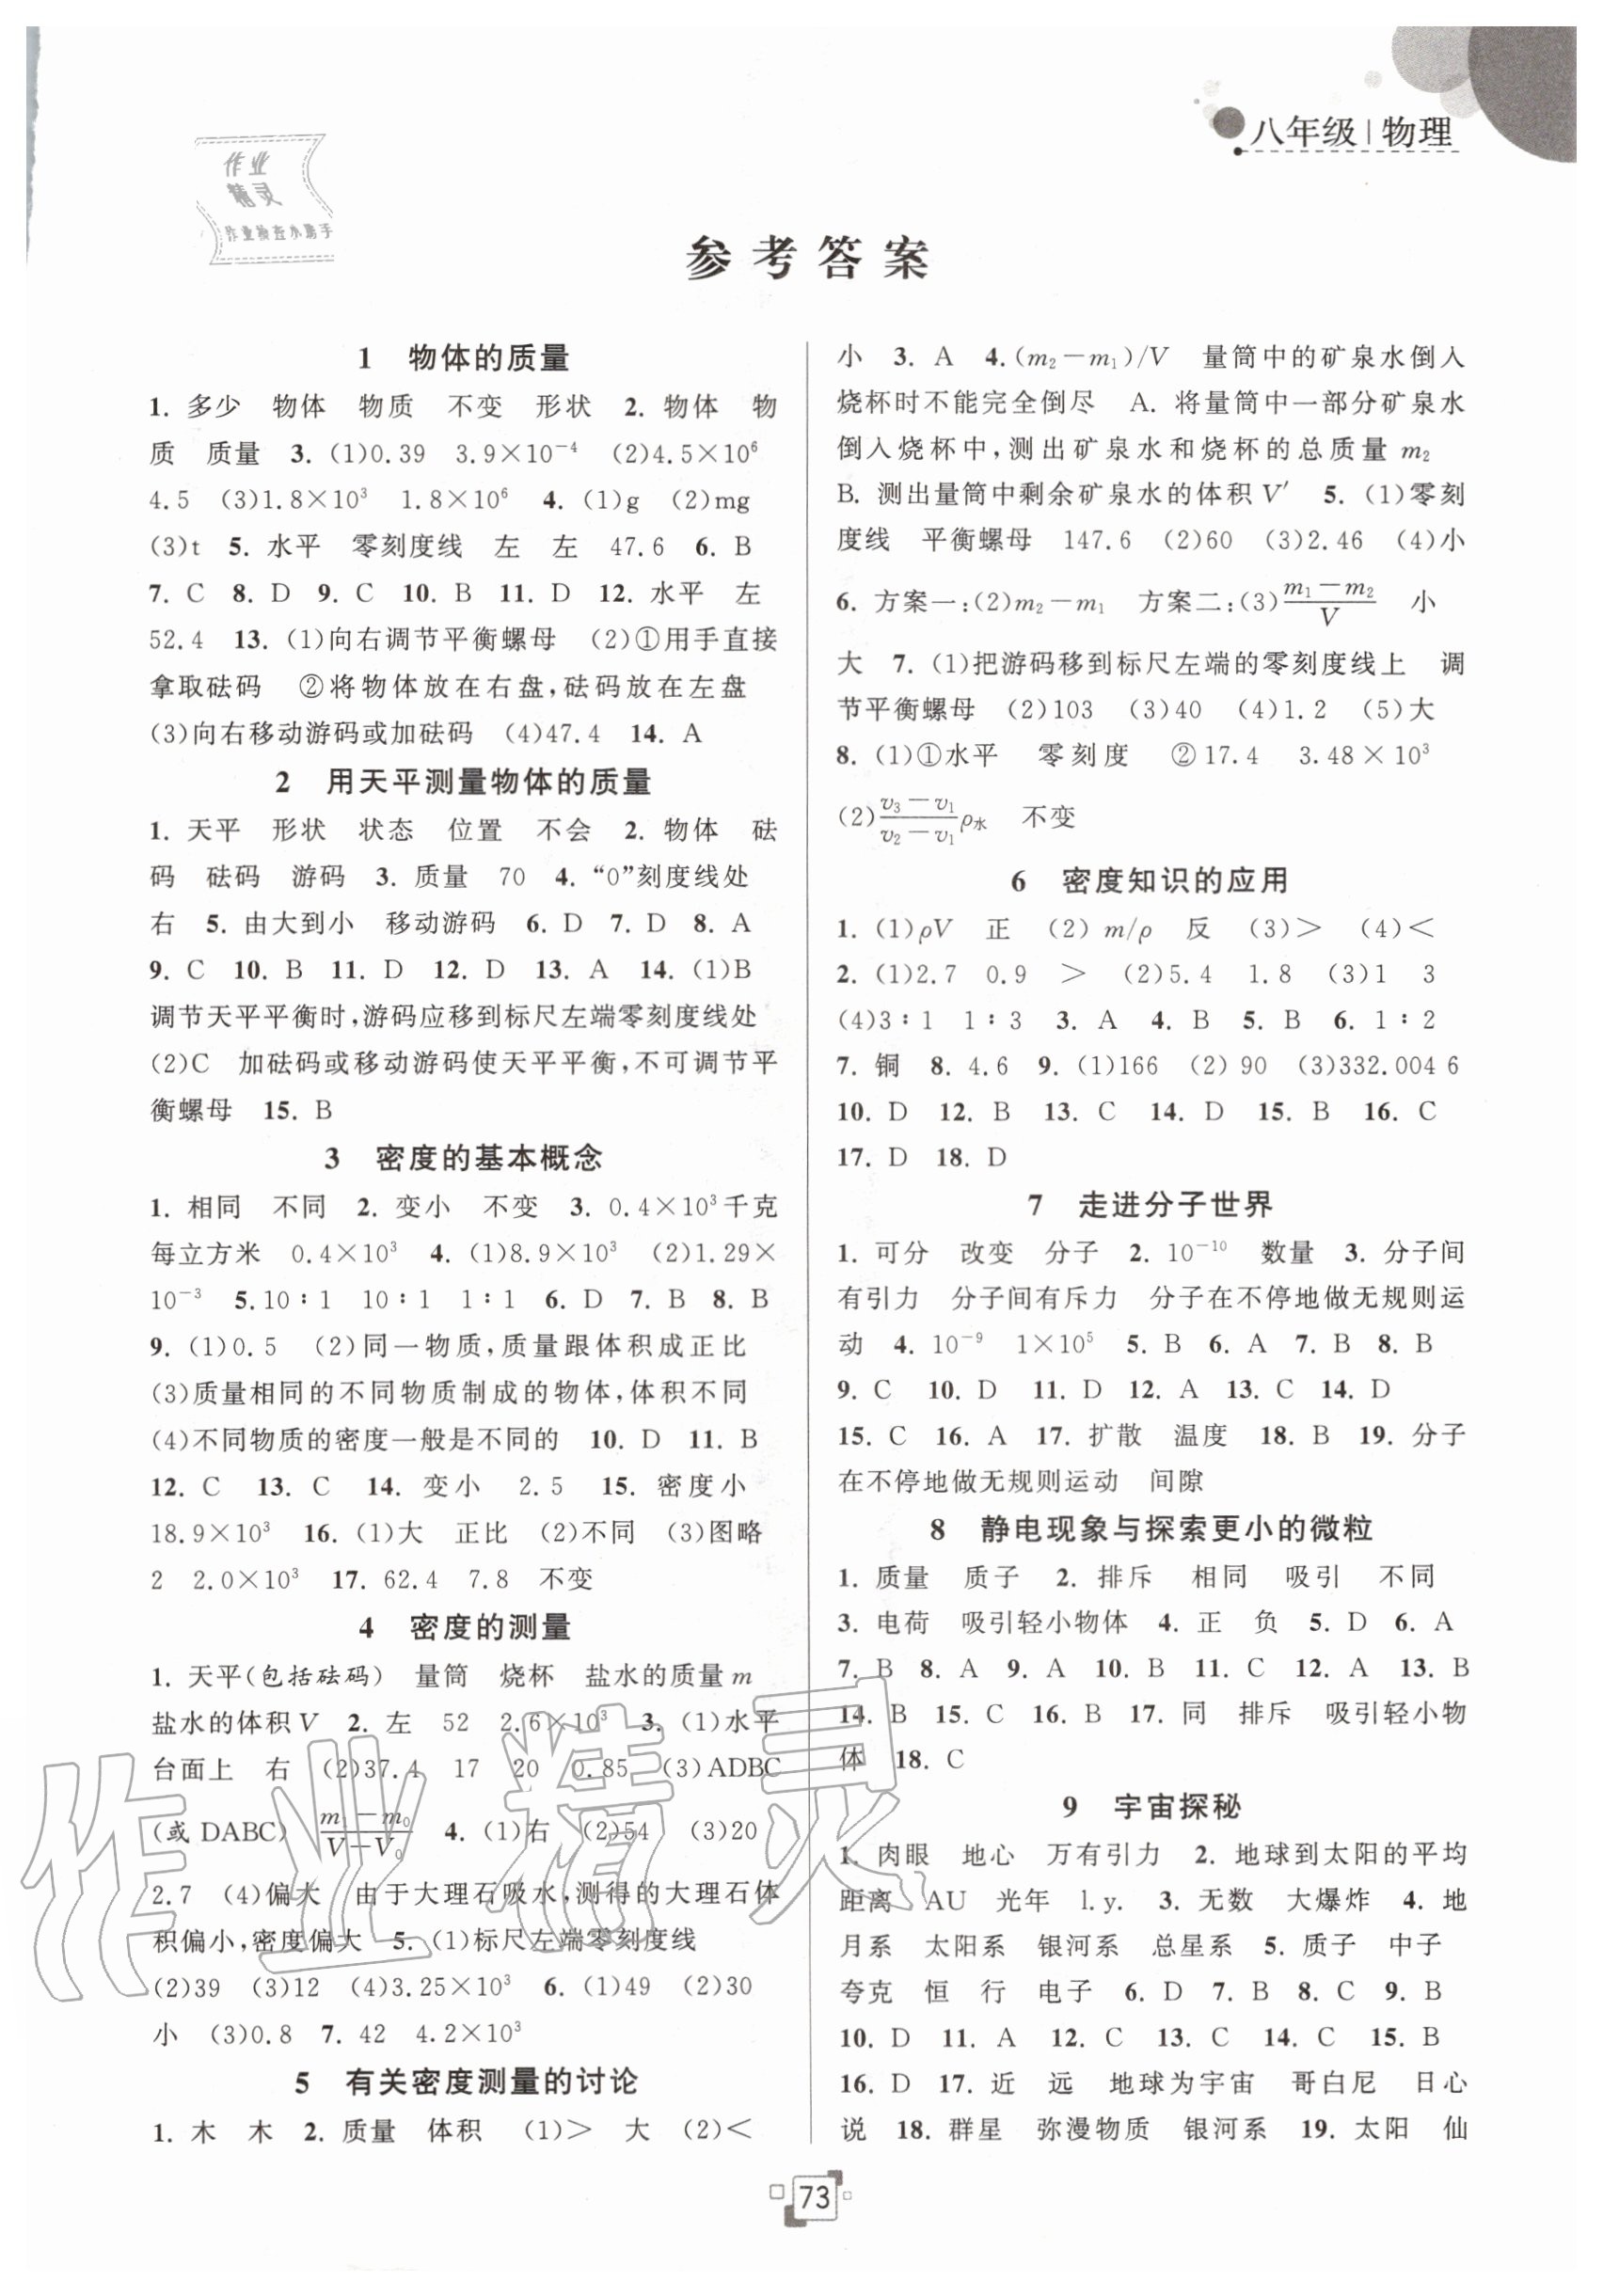 八年级 | 物理
作业
精灵
作业检查小助手
参考答案
1 物体的质量
1. 多少 物体 物质 不变 形状 2. 物体 物
质 质量 3. (1)0.39 3.9×10⁻⁴ (2)4.5×10⁶
4.5 (3)1.8×10³ 1.8×10⁶ 4. (1)g (2)mg
(3)t 5. 水平 零刻度线 左 左 47.6 6. B
7. C 8. D 9. C 10. B 11. D 12. 水平 左
52.4 13. (1)向右调节平衡螺母 (2)①用手直接
拿取砝码 ②将物体放在右盘,砝码放在左盘
(3)向右移动游码或加砝码 (4)47.4 14. A
2 用天平测量物体的质量
1. 天平 形状 状态 位置 不会 2. 物体 砝
码 砝码 游码 3. 质量 70 4. “0”刻度线处
右 5. 由大到小 移动游码 6. D 7. D 8. A
9. C 10. B 11. D 12. D 13. A 14. (1)B
调节天平平衡时,游码应移到标尺左端零刻度线处
(2)C 加砝码或移动游码使天平平衡,不可调节平
衡螺母 15. B
3 密度的基本概念
1. 相同 不同 2. 变小 不变 3. 0.4×10³千克
每立方米 0.4×10³ 4. (1)8.9×10³ (2)1.29×
10⁻³ 5. 10∶1 10∶1 1∶1 6. D 7. B 8. B
9. (1)0.5 (2)同一物质,质量跟体积成正比
(3)质量相同的不同物质制成的物体,体积不同
(4)不同物质的密度一般是不同的 10. D 11. B
12. C 13. C 14. 变小 2.5 15. 密度小
18.9×10³ 16. (1)大 正比 (2)不同 (3)图略
2 2.0×10³ 17. 62.4 7.8 不变
4 密度的测量
1. 天平(包括砝码) 量筒 烧杯 盐水的质量m
盐水的体积V 2. 左 52 2.6×10³ 3. (1)水平
台面上 右 (2)37.4 17 20 0.85 (3)ADBC
(或 DABC) (m₁−m₀)/(V−V₀) 4. (1)右 (2)54 (3)20
2.7 (4)偏大 由于大理石吸水,测得的大理石体
积偏小,密度偏大 5. (1)标尺左端零刻度线
(2)39 (3)12 (4)3.25×10³ 6. (1)49 (2)30
小 (3)0.8 7. 42 4.2×10³
5 有关密度测量的讨论
1. 木 木 2. 质量 体积 (1)> 大 (2)<
小 3. A 4. (m₂−m₁)/V 量筒中的矿泉水倒入
烧杯时不能完全倒尽 A. 将量筒中一部分矿泉水
倒入烧杯中,测出矿泉水和烧杯的总质量 m₂
B. 测出量筒中剩余矿泉水的体积V′ 5. (1)零刻
度线 平衡螺母 147.6 (2)60 (3)2.46 (4)小
6. 方案一:(2)m₂−m₁ 方案二:(3)(m₁−m₂)/V 小
大 7. (1)把游码移到标尺左端的零刻度线上 调
节平衡螺母 (2)103 (3)40 (4)1.2 (5)大
8. (1)①水平 零刻度 ②17.4 3.48×10³
(2)(v₃−v₁)/(v₂−v₁)ρ水 不变
6 密度知识的应用
1. (1)ρV 正 (2) m/ρ 反 (3)> (4)<
2. (1)2.7 0.9 > (2)5.4 1.8 (3)1 3
(4)3∶1 1∶3 3. A 4. B 5. B 6. 1∶2
7. 铜 8. 4.6 9. (1)166 (2) 90 (3)332.004 6
10. D 12. B 13. C 14. D 15. B 16. C
17. D 18. D
7 走进分子世界
1. 可分 改变 分子 2. 10⁻¹⁰ 数量 3. 分子间
有引力 分子间有斥力 分子在不停地做无规则运
动 4. 10⁻⁹ 1×10⁵ 5. B 6. A 7. B 8. B
9. C 10. D 11. D 12. A 13. C 14. D
15. C 16. A 17. 扩散 温度 18. B 19. 分子
在不停地做无规则运动 间隙
8 静电现象与探索更小的微粒
1. 质量 质子 2. 排斥 相同 吸引 不同
3. 电荷 吸引轻小物体 4. 正 负 5. D 6. A
7. B 8. A 9. A 10. B 11. C 12. A 13. B
14. B 15. C 16. B 17. 同 排斥 吸引轻小物
体 18. C
9 宇宙探秘
1. 肉眼 地心 万有引力 2. 地球到太阳的平均
距离 AU 光年 l.y. 3. 无数 大爆炸 4. 地
月系 太阳系 银河系 总星系 5. 质子 中子
夸克 恒 行 电子 6. D 7. B 8. C 9. B
10. D 11. A 12. C 13. C 14. C 15. B
16. D 17. 近 远 地球为宇宙 哥白尼 日心
说 18. 群星 弥漫物质 银河系 19. 太阳 仙
作业精灵
73